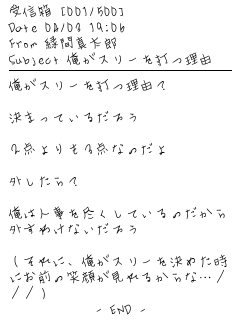 受信箱 [001/500]
Date 04/08 19:06
From 緑間真太郎
Subject 俺がスリーを打つ理由
俺がスリーを打つ理由？
決まっているだろう
2点よりも3点なのだよ
外したら？
俺は人事を尽くしているのだから
外すわけないだろう
(それに、俺がスリーを決めた時
にお前の笑顔が見れるからな…/
//)
- END -